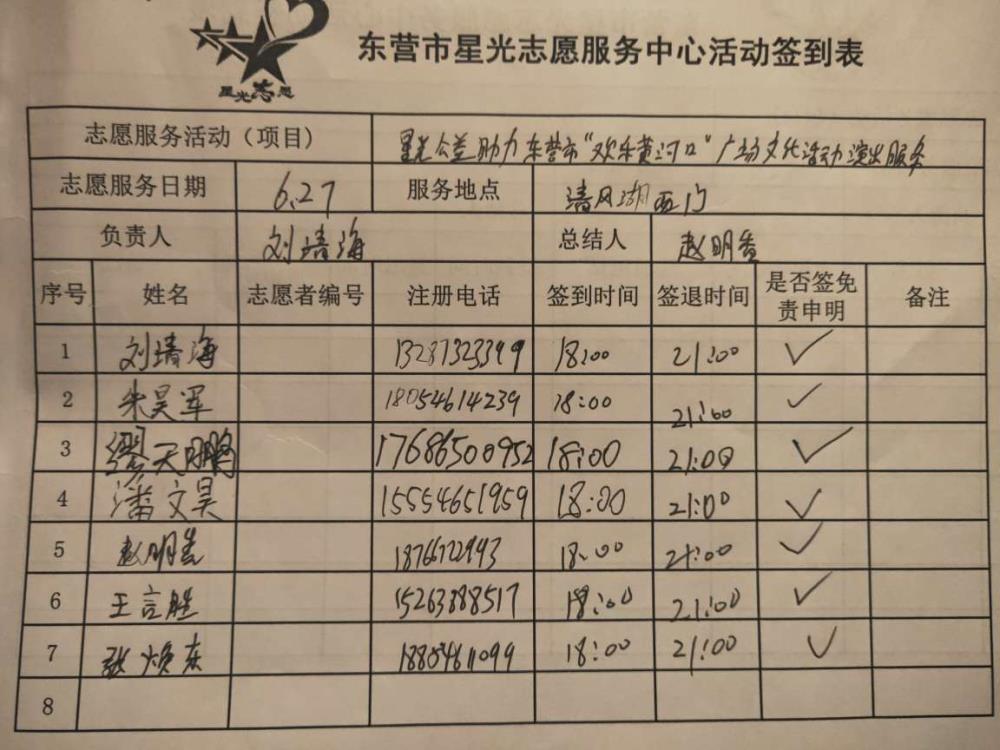 星光志愿
东营市星光志愿服务中心活动签到表
志愿服务活动（项目） 星光公益助力东营市“欢乐黄河口”广场文化活动演出服务
志愿服务日期 6.27 服务地点 清风湖西门
负责人 刘靖海 总结人 赵明
序号 姓名 志愿者编号 注册电话 签到时间 签退时间 是否签免责申明 备注
1 刘靖海 18:00 21:00 ✓
2 朱昊军 18054614239 18:00 21:00 ✓
3 缪天鹏 17686500952 18:00 21:00 ✓
4 潘文昊 15554651959 18:00 21:00 ✓
5 赵明 18:00 21:00 ✓
6 王言胜 15263888517 18:00 21:00 ✓
7 张焕东 18:00 21:00 ✓
8